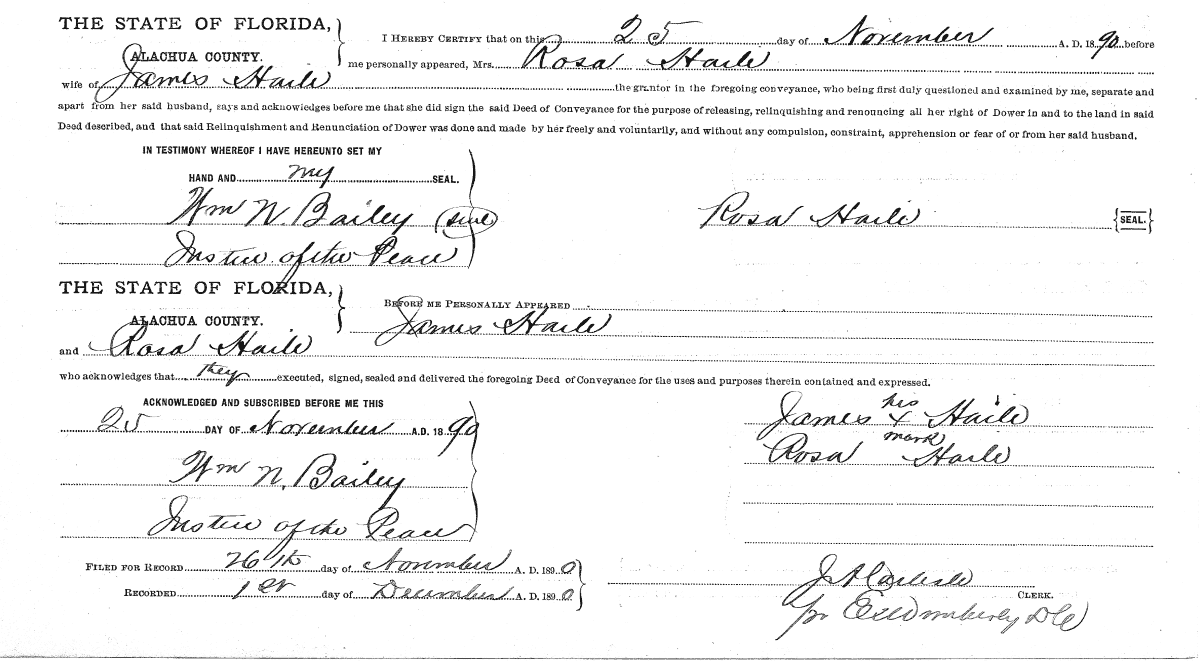 THE STATE OF FLORIDA,
ALACHUA COUNTY.
I HEREBY CERTIFY that on this 25 day of November A. D. 1890 before
me personally appeared, Mrs. Rosa Haile
wife of James Haile the grantor in the foregoing conveyance, who being first duly questioned and examined by me, separate and
apart from her said husband, says and acknowledges before me that she did sign the said Deed of Conveyance for the purpose of releasing, relinquishing and renouncing all her right of Dower in and to the land in said
Deed described, and that said Relinquishment and Renunciation of Dower was done and made by her freely and voluntarily, and without any compulsion, constraint, apprehension or fear of or from her said husband.
IN TESTIMONY WHEREOF I HAVE HEREUNTO SET MY
HAND AND my SEAL.
Wm N. Bailey (seal)
Rosa Haile {SEAL.}
Justice of the Peace
THE STATE OF FLORIDA,
ALACHUA COUNTY.
BEFORE ME PERSONALLY APPEARED
James Haile
and Rosa Haile
who acknowledges that they executed, signed, sealed and delivered the foregoing Deed of Conveyance for the uses and purposes therein contained and expressed.
ACKNOWLEDGED AND SUBSCRIBED BEFORE ME THIS
25 DAY OF November A.D. 1890
Wm N. Bailey
Justice of the Peace
his
James x Haile
mark
Rosa Haile
FILED FOR RECORD 26th day of November A. D. 1890
RECORDED 1st day of December A. D. 1890
J A Carlisle
CLERK.
pr Wimberly DC